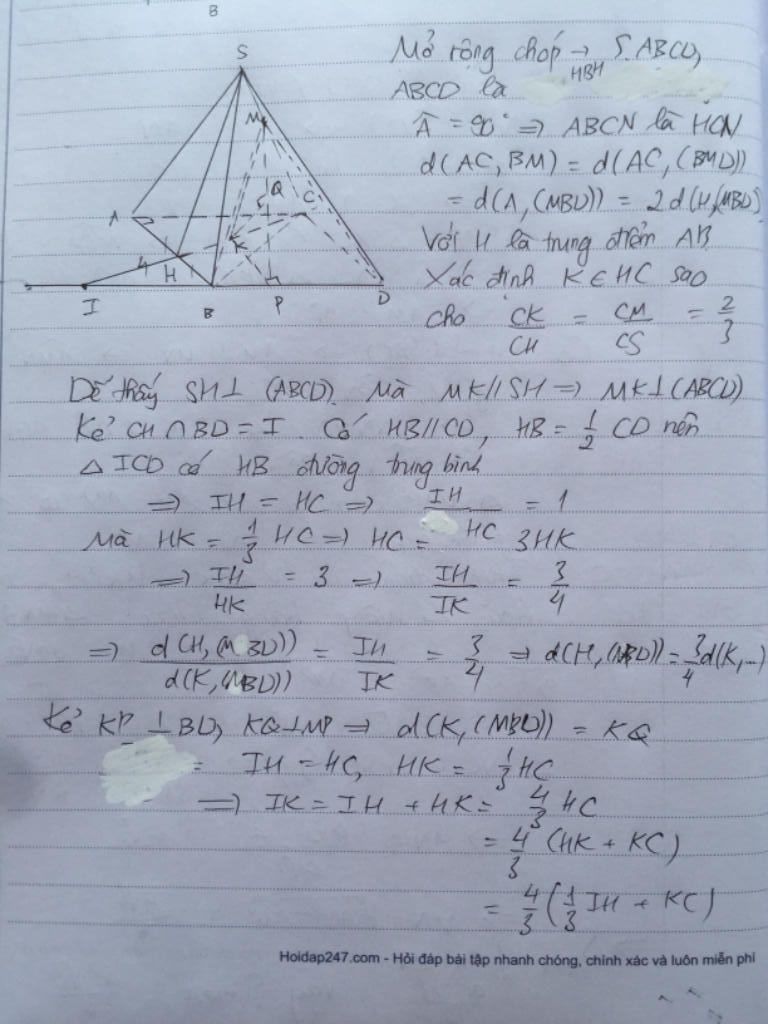 B
S
M
Q
A
C
K
4
H
I
B
P
D
Mở rộng chóp → S.ABCD,
ABCD là HBH
Â = 90° => ABCN là HCN
d(AC, BM) = d(AC, (BMD))
= d(A, (MBD)) = 2d(H,(MBD)
Với H là trung điểm AB
Xác định K ∈ HC sao
cho CK/CH = CM/CS = 2/3
Dễ thấy SH ⊥ (ABCD). Mà MK // SH => MK ⊥ (ABCD)
Kẻ CH ∩ BD = I. Có HB // CD, HB = 1/2 CD nên
△ ICD có HB đường trung bình
=> IH = HC => IH/HC = 1
Mà HK = 1/3 HC => HC = 3HK
=> IH/HK = 3 => IH/IK = 3/4
=> d(H, (MBD))/d(K, (MBD)) = IH/IK = 3/4 => d(H, (MBD)) = 3/4 d(K, ...)
Kẻ KP ⊥ BD, KQ ⊥ MP => d(K, (MBD)) = KQ
= IH = HC, HK = 1/3 HC
=> IK = IH + HK = 4/3 HC
= 4/3 (HK + KC)
= 4/3 (1/3 IH + KC)
Hoidap247.com - Hỏi đáp bài tập nhanh chóng, chính xác và luôn miễn phí